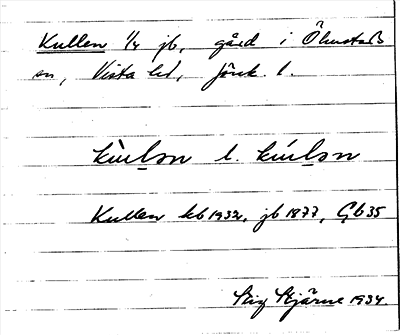 Kullen 1/4 jb, gård i Ölmstads
sn, Vista hd, Jönk. l.
kùlən l. kúlən
Kullen kb 1932, jb 1877, Gb 35
Stig Stjärne 1934